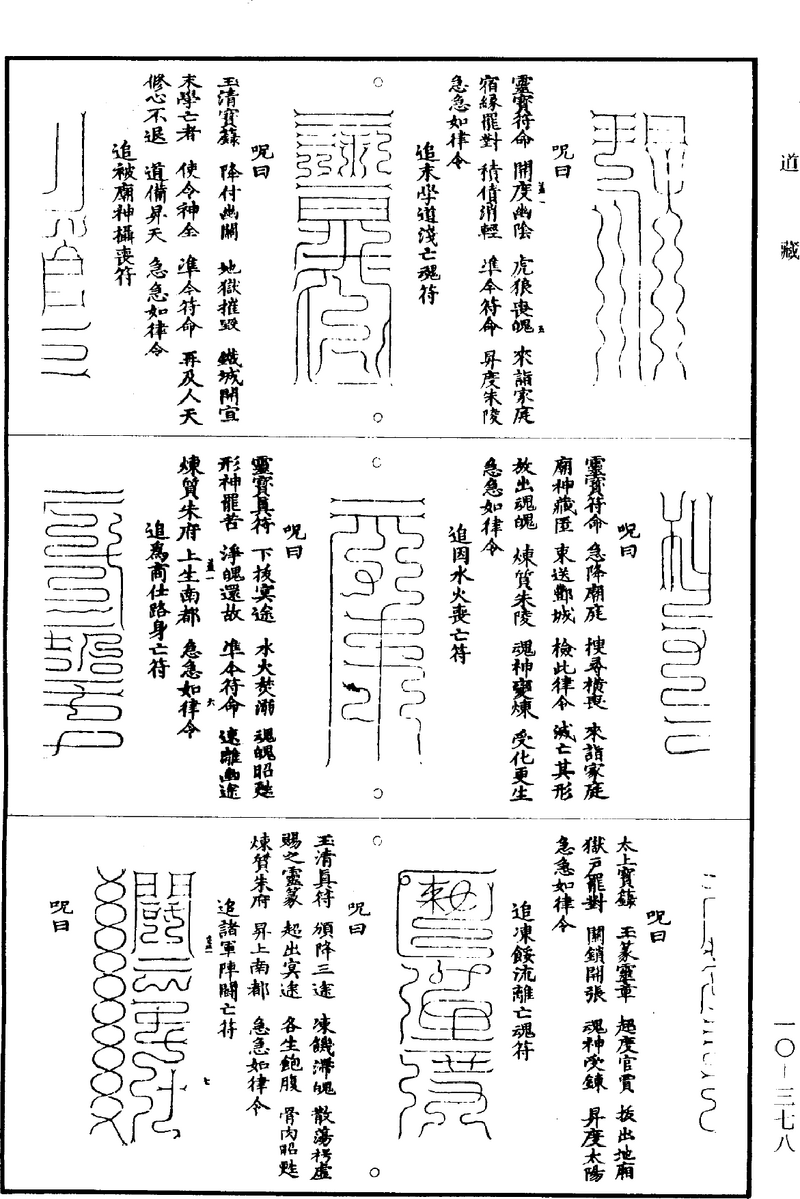 道藏
咒曰
靈寶符命 開度幽陰 虎狼喪魄 來詣家庭
宿緣罷對 積債消輕 準令符命 昇度朱陵
急急如律令
追未學道淺亡魂符
咒曰
玉清寶籙 降付幽關 地獄摧毀 鐵城開宣
未學亡者 使令神全 準令符命 再及人天
修心不退 道備昇天 急急如律令
追被廟神攝喪符
咒曰
靈寶符命 急降廟庭 搜尋橫喪 來詣家庭
廟神藏匿 東送酆城 檢此律令 滅亡其形
放出魂魄 煉質朱陵 魂神變煉 受化更生
急急如律令
追因水火喪亡符
咒曰
靈寶眞符 下拔冥途 水火焚溺 魂魄昭甦
形神罷苦 淨魄還故 準令符命 速離幽途
煉質朱府 上生南都 急急如律令
追爲商仕路身亡符
咒曰
太上寶籙 玉篆靈章 超度官賈 拔出地廟
獄戶罷對 關鎖開張 魂神受鍊 昇度太陽
急急如律令
追凍餒流離亡魂符
咒曰
玉清眞符 頒降三途 凍饑滯魄 散蕩枵虛
賜之靈篆 超出冥途 各生飽腹 骨肉昭甦
煉質朱府 昇上南都 急急如律令
追諸軍陣鬭亡符
咒曰
一〇-三七八